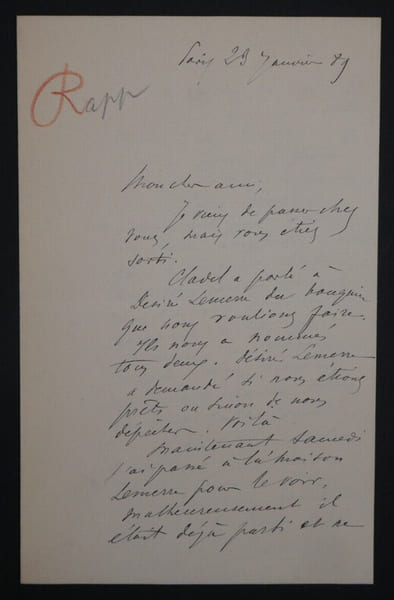 Paris 29 Janvier 89
Rapp
Mon cher ami,
Je viens de passer chez
vous, mais vous étiez
sorti.
Cladel a parlé à
Désiré Lemerre du bouquin
que nous voulions faire.
Ils nous a nommés
tous deux. Désiré Lemerre
a demandé si nous étions
prêts ou sinon de nous
dépêcher. Voilà
Maintenant Samedi
j'ai passé à la maison
Lemerre pour le voir,
malheureusement il
était déjà parti et ne